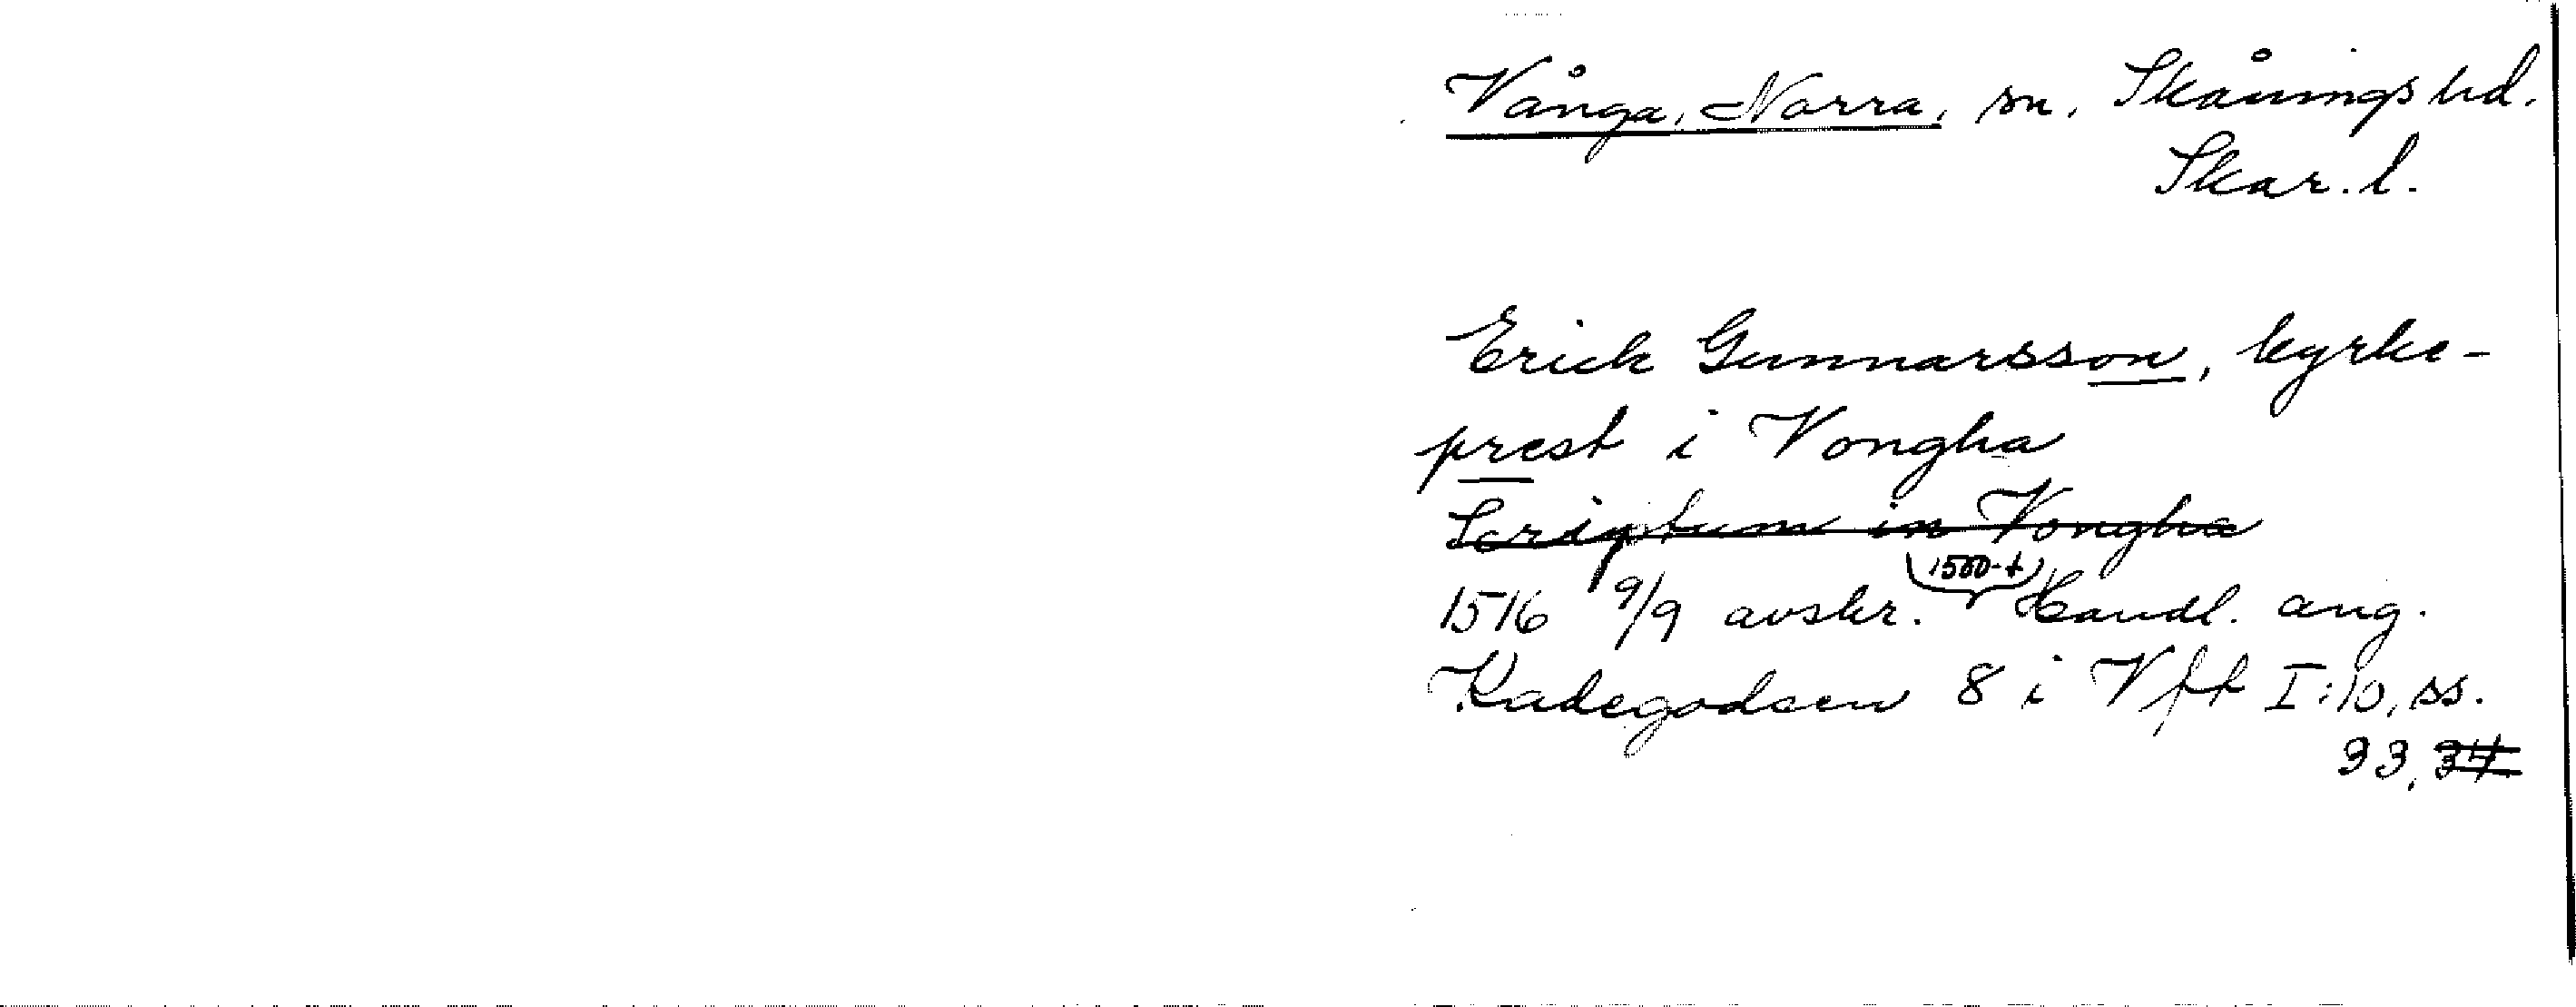 Vånga, Norra, sn. Skånings hd.
Skar. l.
Erick Gunnarsson, kyrke-
prest i Vongha
Scriptum in Vongha
1500-t
1516 9/9 avskr. Handl. ang.
Kadegodsen 8 i Vft I:10, ss.
33, 34